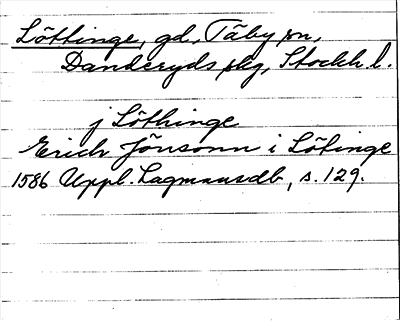 Löttinge, gd, Täby sn,
Danderyds skg, Stockh. l.
j Löthinge
Erich Jönsonn i Lötinge
1586 Uppl. Lagmansdb, s. 129.